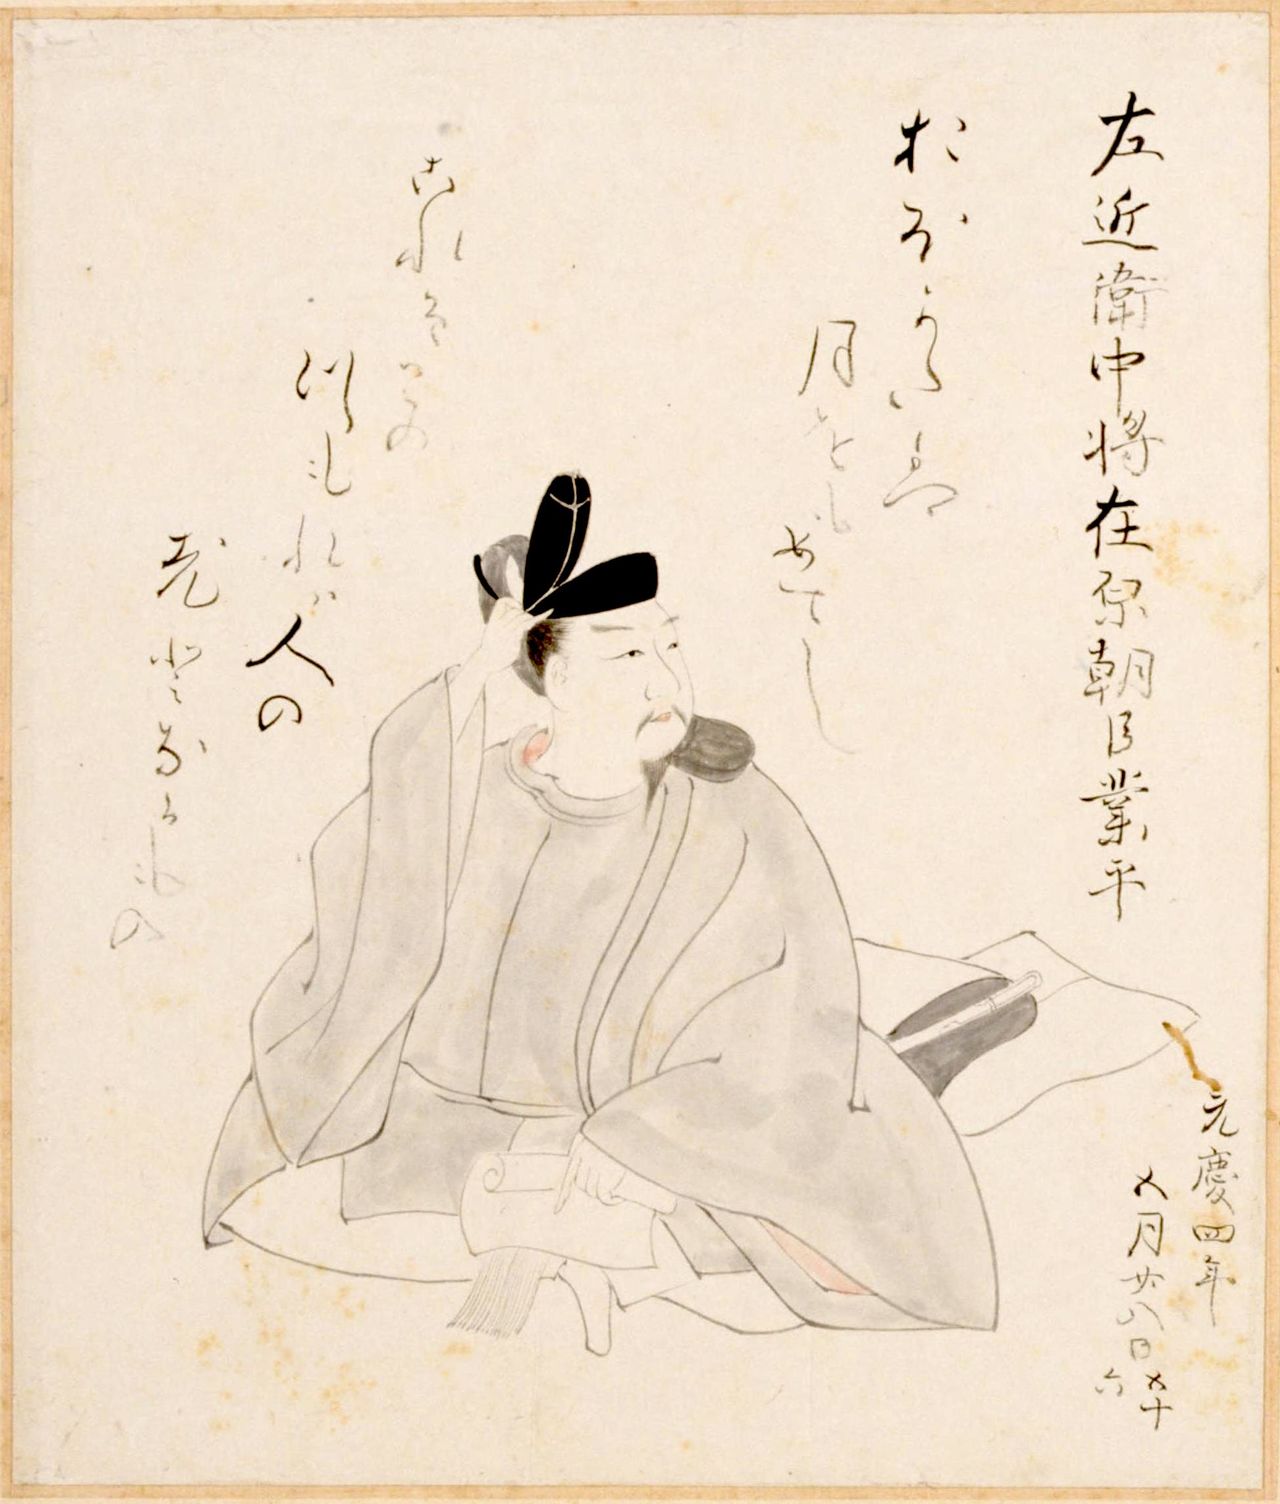 左近衛中将在原朝臣業平
おほかたは
月をもめてし
これそこの
つもれは人の
老となるもの
元慶四年
五月廿八日五十
六